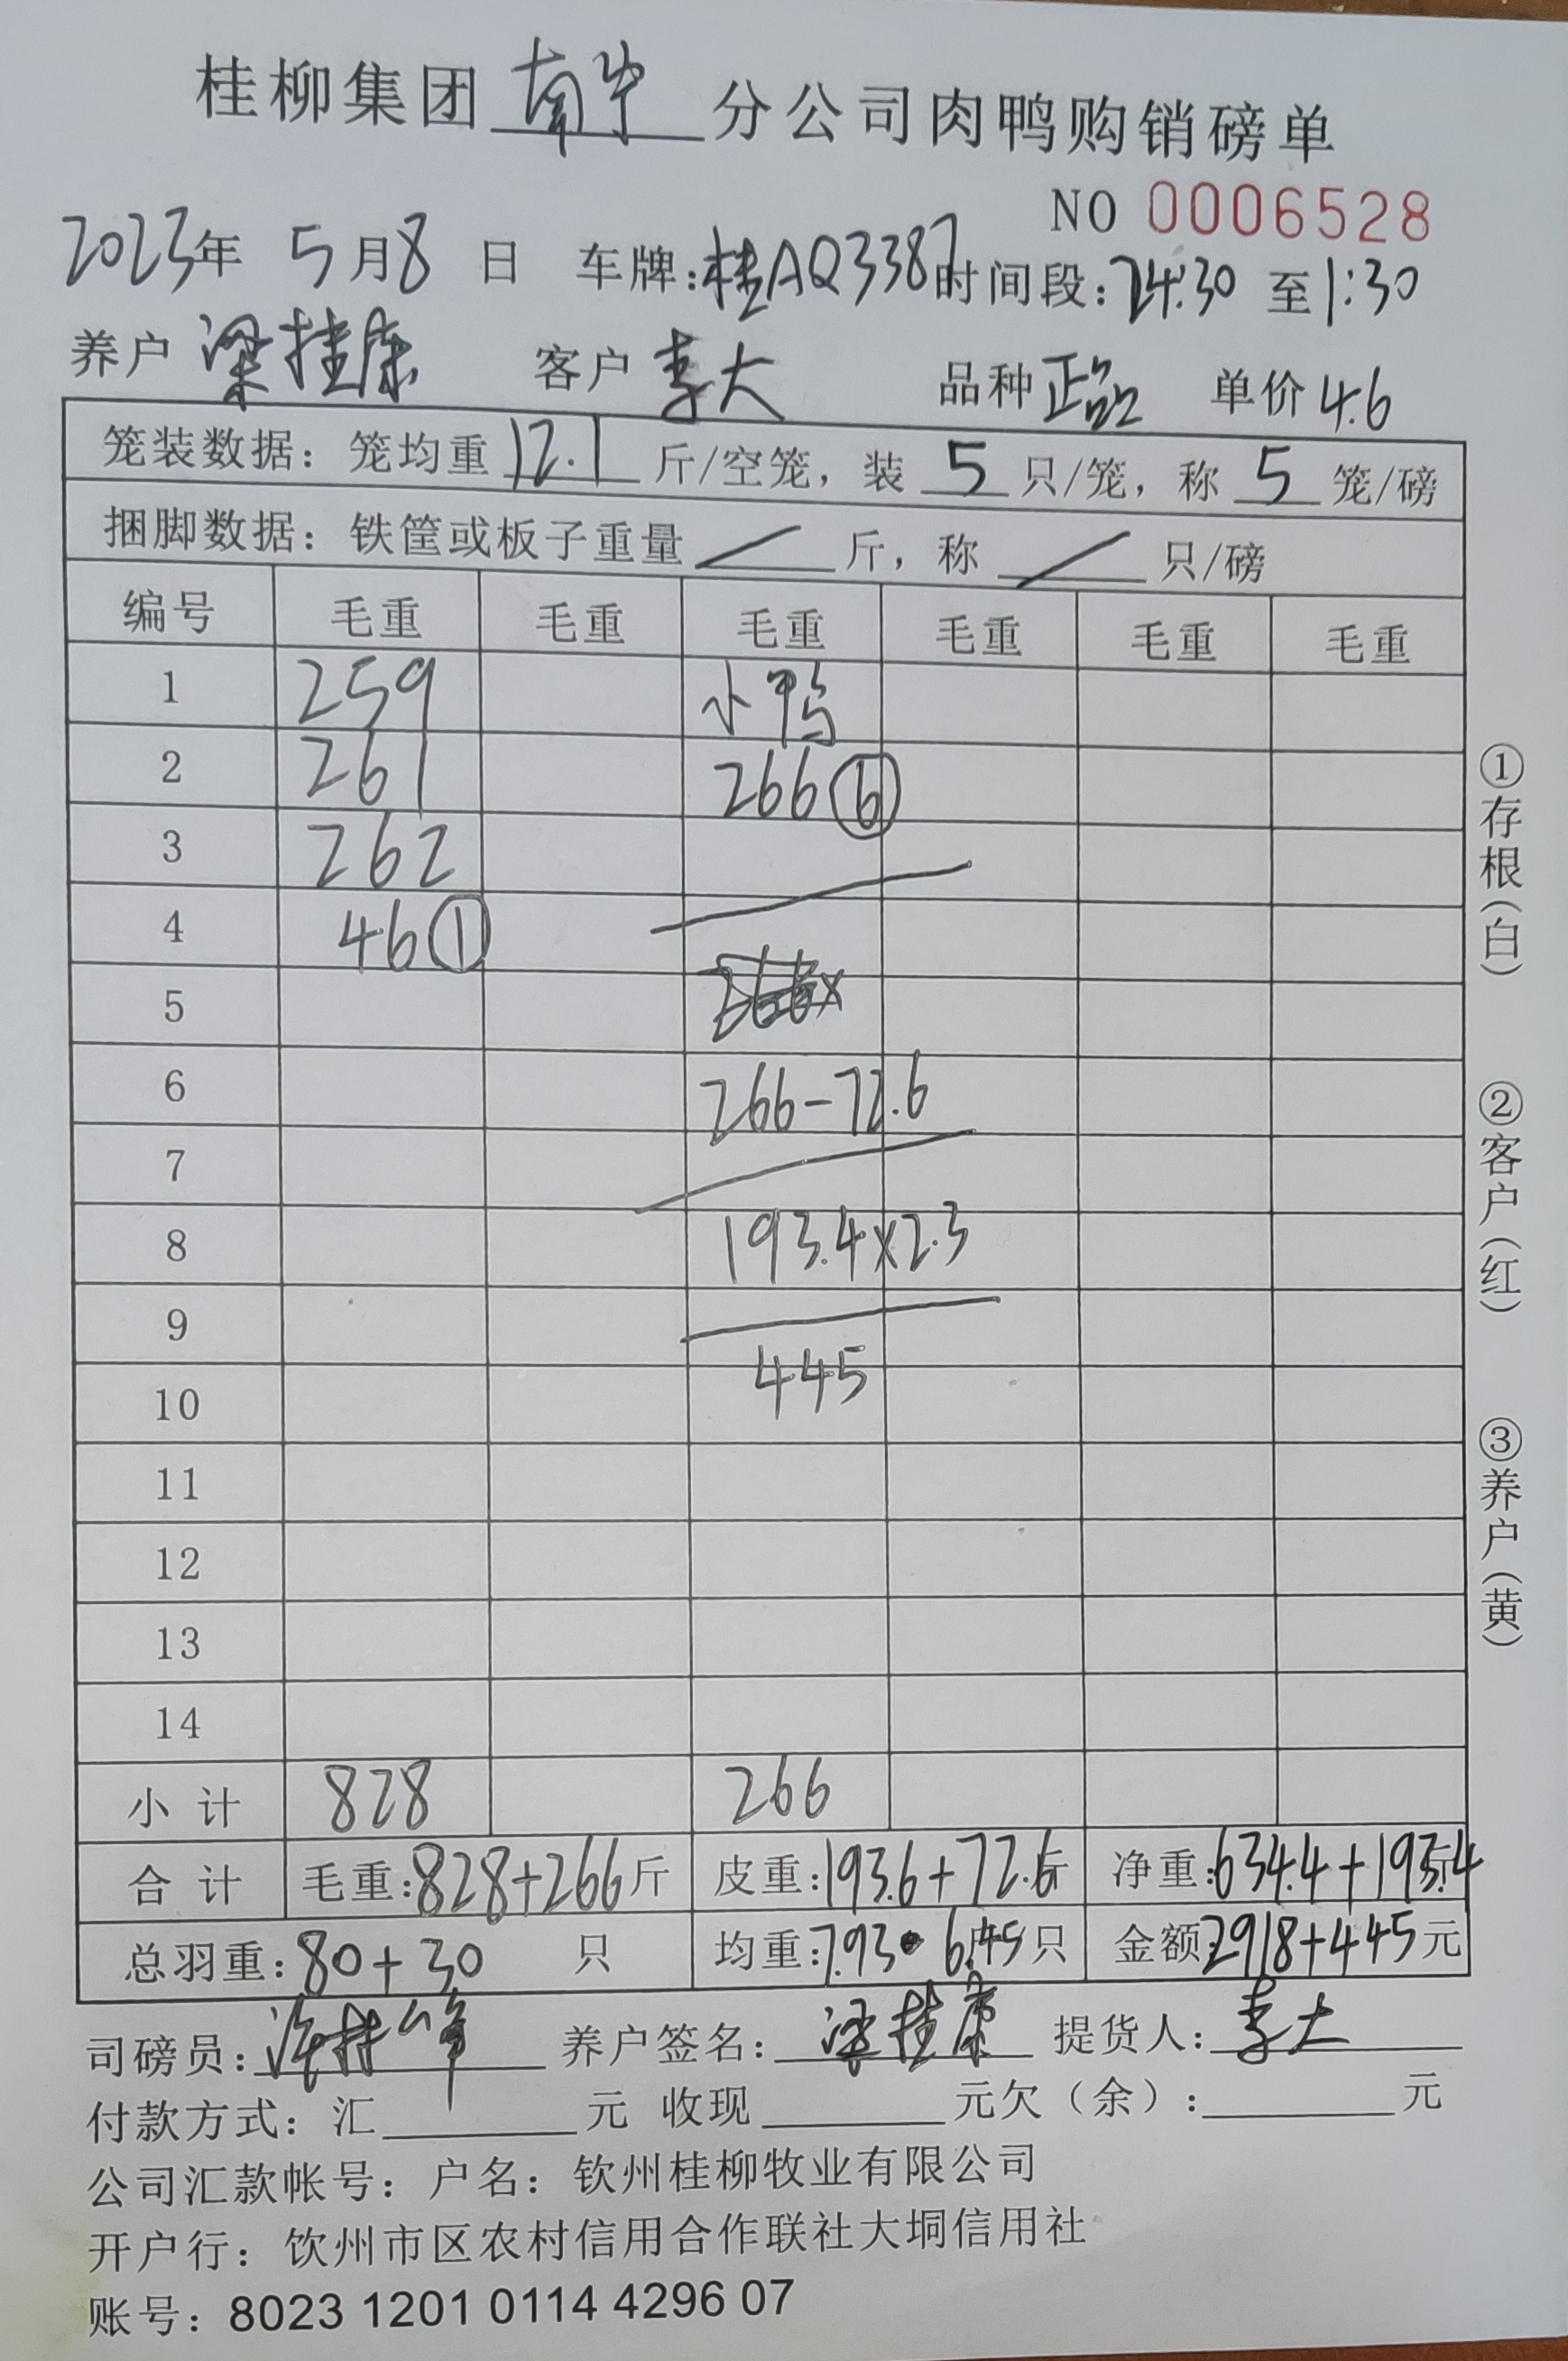 桂柳集团南宁分公司肉鸭购销磅单
NO 0006528
2023年 5月8日 车牌:桂AQ3387 时间段:24:30 至1:30
养户 梁桂康 客户 李大 品种 正品 单价 4.6
笼装数据: 笼均重 12.1 斤/空笼, 装 5 只/笼, 称 5 笼/磅
捆脚数据: 铁筐或板子重量 / 斤, 称 / 只/磅
编号 毛重 毛重 毛重 毛重 毛重 毛重
1 259 小鸭
2 261 266⑥
3 262
4 46①
5
6 266-72.6
7
8 193.4×2.3
9
10 445
11
12
13
14
小计 828 266
合计 毛重:828+266斤 皮重:193.6+72.6斤 净重:634.4+193.4斤
总羽重:80+30 只 均重:7.93 6.45只 金额:2918+445元
司磅员: 养户签名:梁桂康 提货人:李大
付款方式: 汇 元 收现 元欠(余): 元
公司汇款帐号: 户名: 钦州桂柳牧业有限公司
开户行: 饮州市区农村信用合作联社大垌信用社
账号: 8023 1201 0114 4296 07
①存根(白)
②客户(红)
③养户(黄)